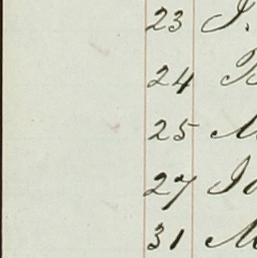 23 J.
24
25
27 Jo
31